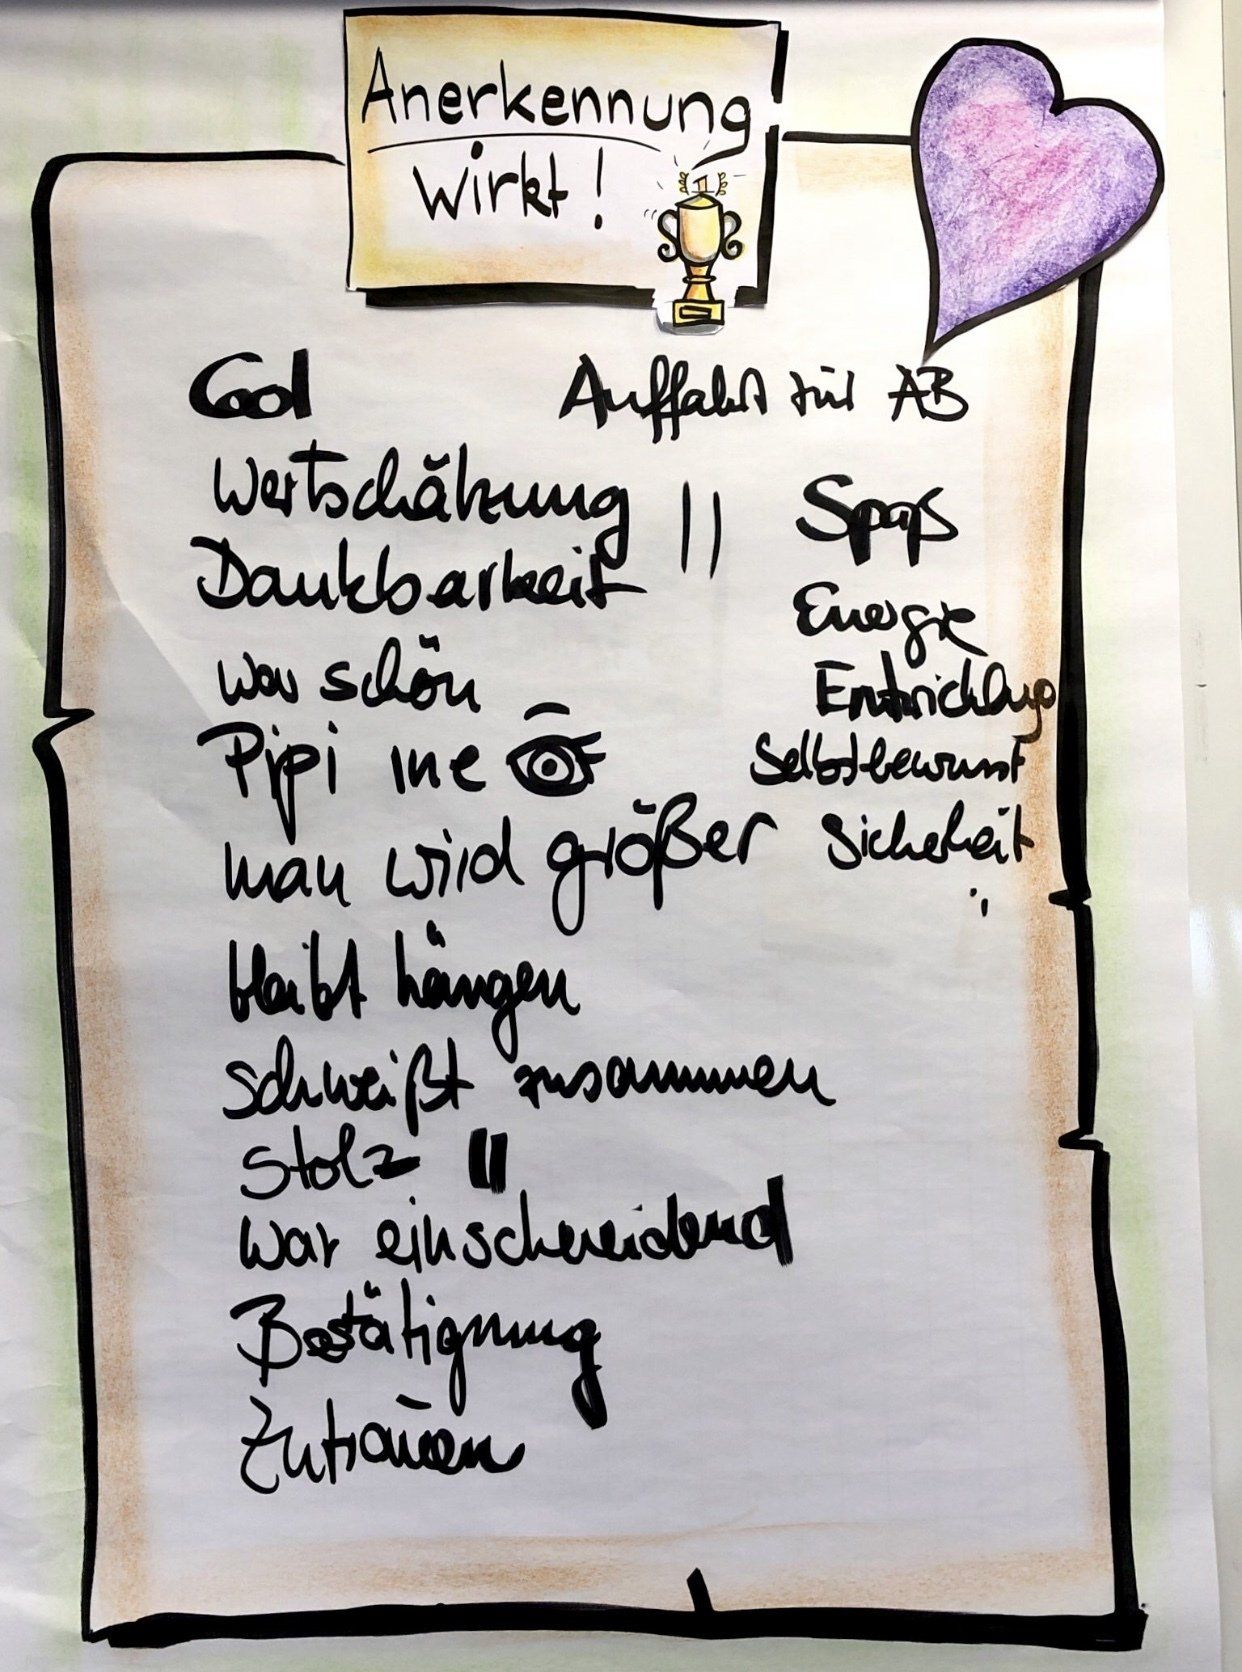 Anerkennung
wirkt!
Cool
Wertschätzung ||
Dankbarkeit
war schön
Pipi ine
man wird größer
bleibt hängen
schweißt zusammen
Stolz ||
war einschneidend
Bestätigung
Zutrauen
Auffahrt für AB
Spaß
Energie
Entwicklung
Selbstbewusst
Sicherheit